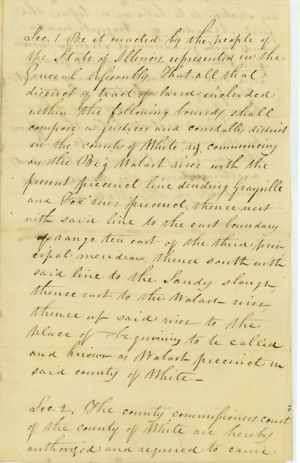 Sec. 1 Be it enacted by the people of
the State of Illinois, represented in the
General Assembly, That all that
district of tract of land included
within the following bounds shall
compose a justices and constables district
in the county of White viz, commencing
on the Big Wabash river with the
present precinct line dividing Grayville
and Fox river precinct, thence west
with said line to the east boundary
of range ten east of the third prin-
cipal meridian, thence south with
said line to the Sandy slough,
thence east to the Wabash river
thence up said river to the
place of beginning to be called
and known as Wabash precinct in
said county of White—
Sec 2. The county commissioners court
of the county of White are hereby
authorized and required to cause